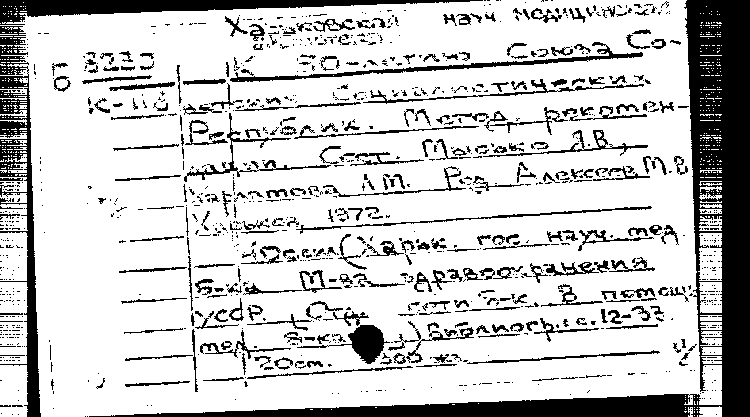 Харьковская науч. медицинская
библиотека
Б 8233 К 50-летию Союза Со-
К-118 ветских Социалистических
Республик. Метод. рекомен-
дации. Сост. Мысько Я.В.,
Карлатова А.М. Ред. Алексеев М.В
Харьков, 1972.
40ссм (Харьк. гос. науч. мед.
б-ка М-ва здравоохранения
УССР. сети б-к. В помощь
мед. б-ка ) Библиогр.: с. 12-37.
20cm. 300 экз.